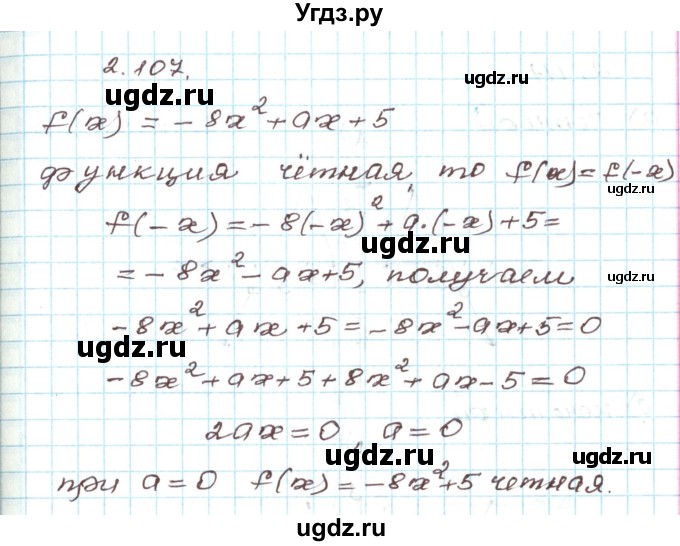 Угдз.ру
2.107.
ugdz.ru
ugdz.ru
f(x) = - 8x² + ax + 5
функция чётная, то f(x) = f(-x)
f(-x) = - 8(-x)² + a·(-x) + 5 =
ugdz.ru
= - 8x² - ax + 5, получаем
ugdz.ru
-8x² + ax + 5 = -8x² - ax + 5 = 0
ugdz.ru
-8x² + ax + 5 + 8x² + ax - 5 = 0
ugdz.ru
2ax = 0, a = 0
ugdz.ru
при a = 0 f(x) = -8x² + 5 четная.
ugdz.ru